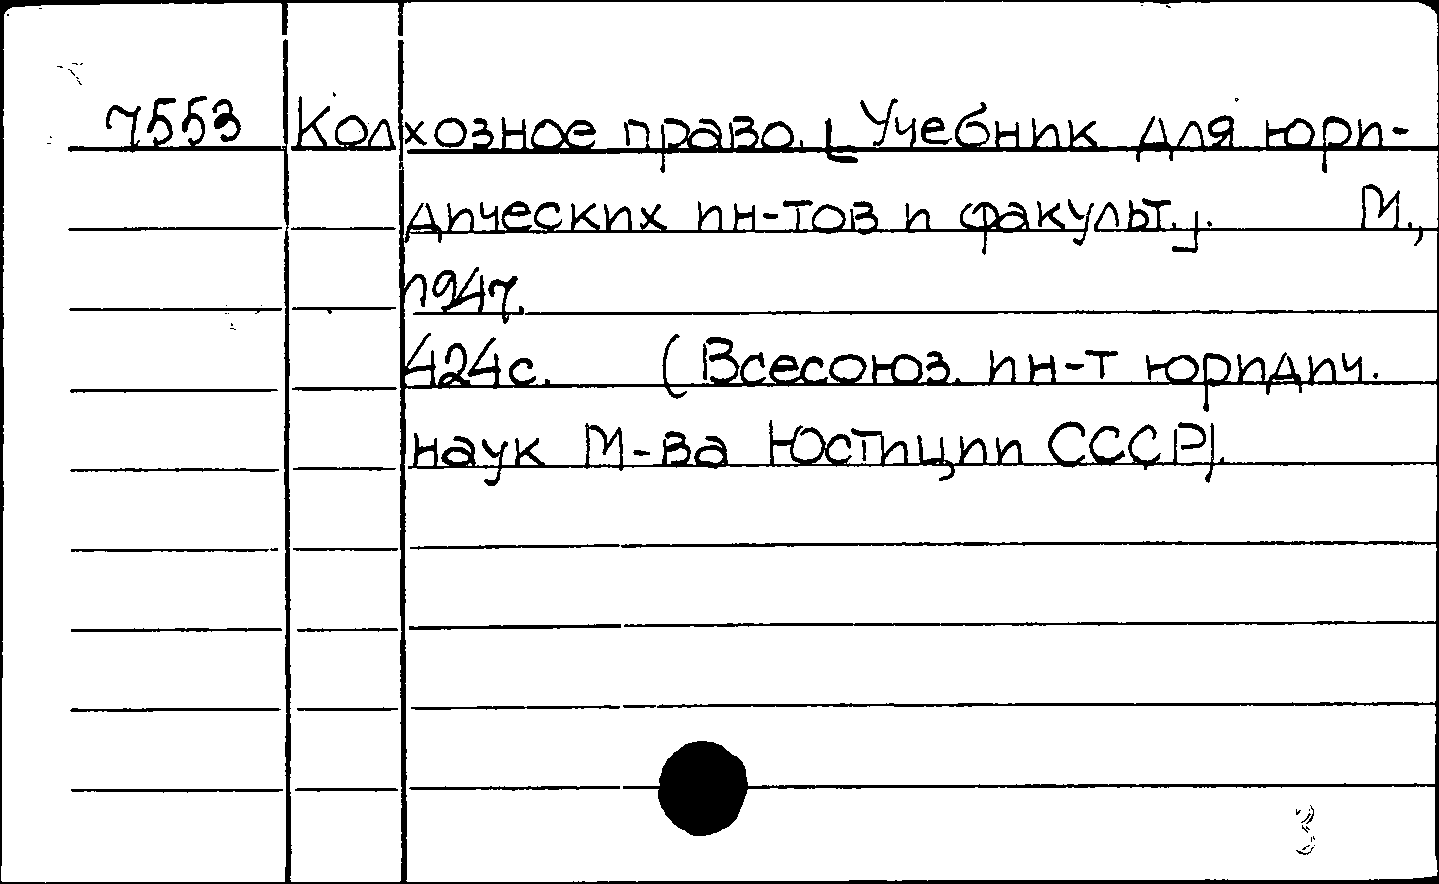 7553 Колхозное право. [Учебник для юри-
дических ин-тов и факульт.]. М.,
1947.
424с. (Всесоюз. ин-т юридич.
наук М-ва Юстиции СССР).
3